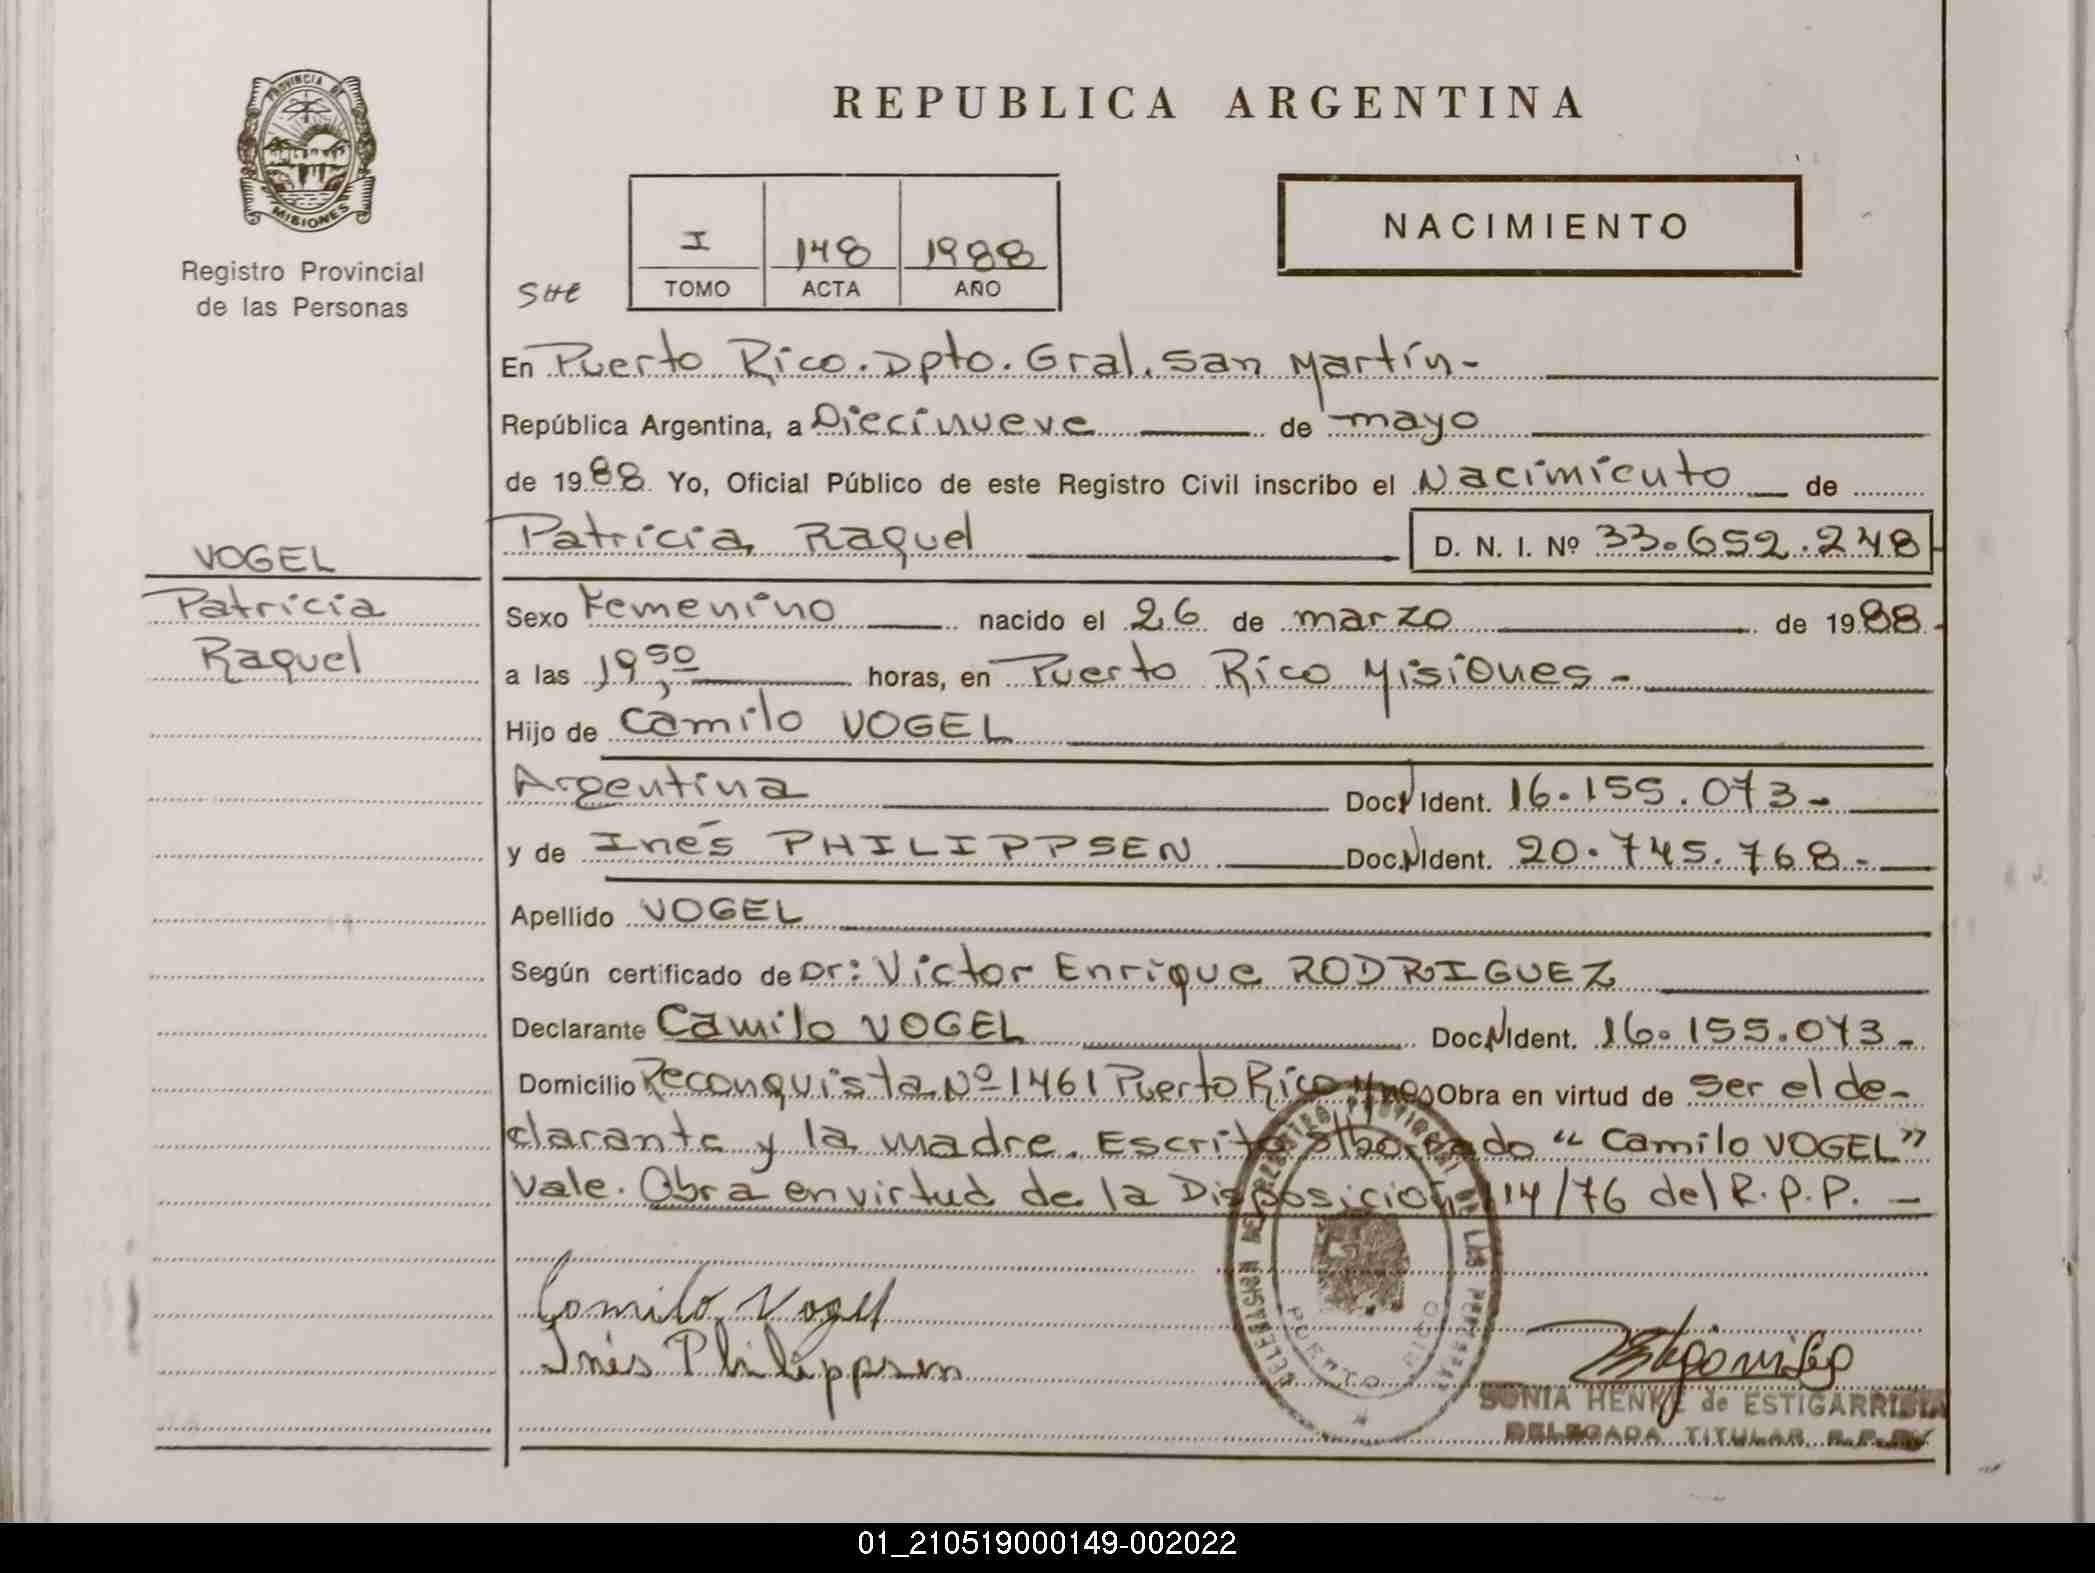 PROVINCIA DE
MISIONES
Registro Provincial
de las Personas
REPUBLICA ARGENTINA
NACIMIENTO
I 148 1988
TOMO ACTA AÑO
En Puerto Rico. Dpto. Gral. San Martín-
República Argentina, a Diecinueve de mayo
de 1988 Yo, Oficial Público de este Registro Civil inscribo el Nacimiento de
Patricia Raquel D. N. I. Nº 33.652.248
VOGEL
Patricia
Raquel
Sexo Femenino nacido el 26 de marzo de 1988.
a las 19,50 horas, en Puerto Rico Misiones -
Hijo de Camilo VOGEL
Argentina Doc. Ident. 16.155.073-
y de Inés PHILIPPSEN Doc. N Ident. 20.745.768-
Apellido VOGEL
Según certificado de Dr: Victor Enrique RODRIGUEZ
Declarante Camilo VOGEL Doc. N Ident. 16.155.073-
Domicilio Reconquista Nº 1461 Puerto Rico Mnes Obra en virtud de Ser el de-
clarante y la madre. Escrito s/borrado "Camilo VOGEL"
Vale. Obra en virtud de la Disposición 114/76 del R.P.P. -
Camilo Vogel
Inés Philippsen
DELEGACION DEL REGISTRO PROVINCIAL DE LAS PERSONAS
PUERTO RICO
SONIA HENKE de ESTIGARRIBIA
DELEGADA TITULAR R.P.P.
01_210519000149-002022